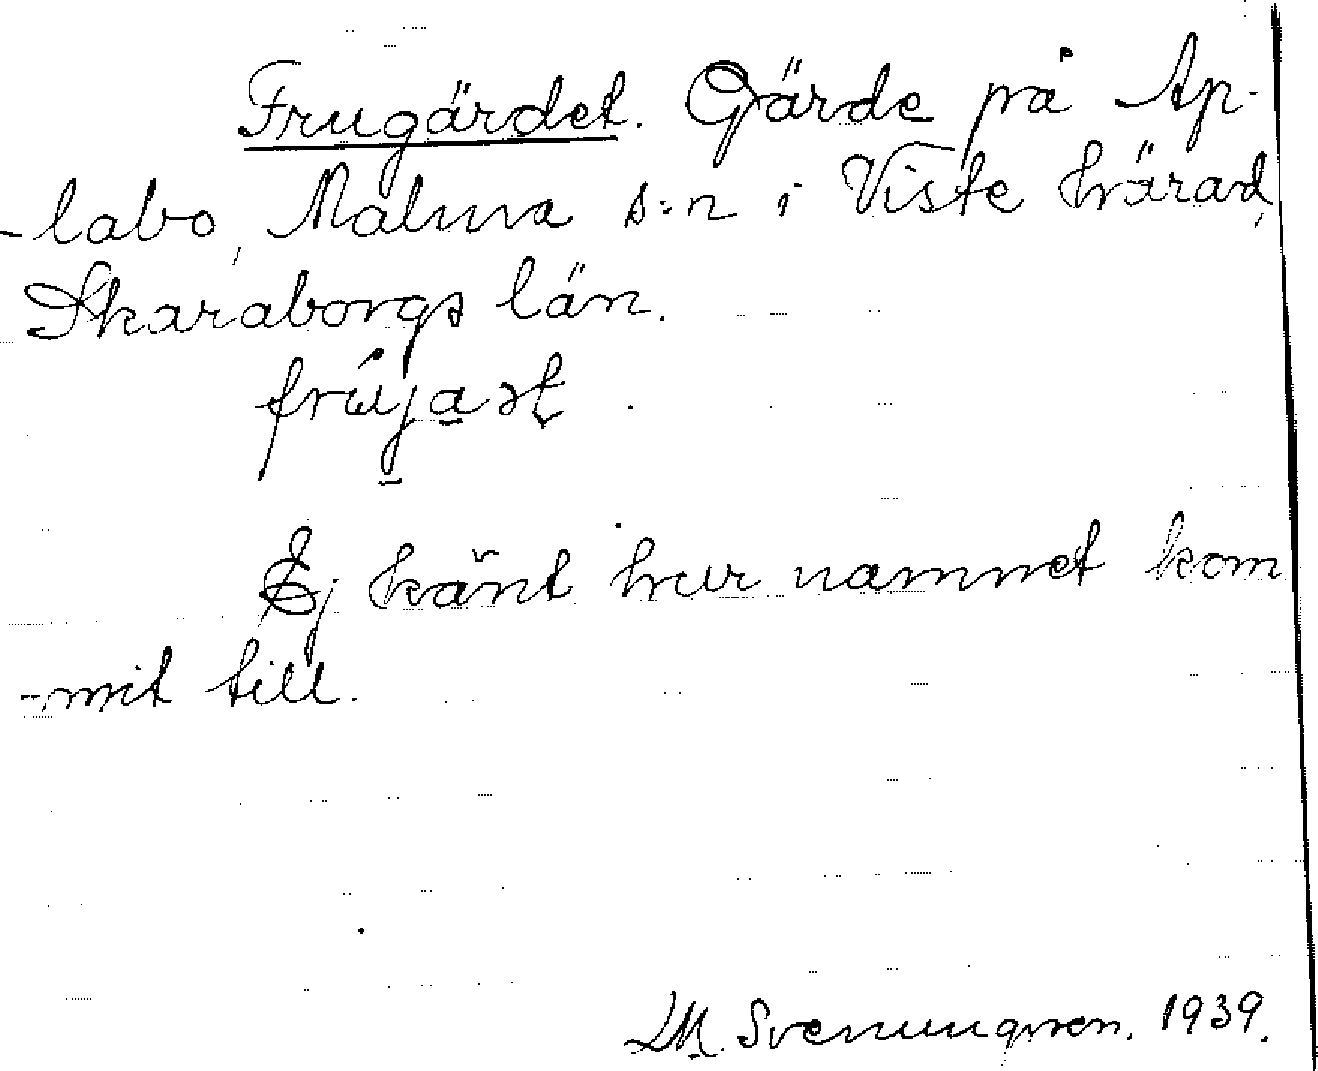 Frugärdet. Gärde på Ap-
-labo, Malma s:n i Viste härad,
Skaraborgs län.
Ej känt hur namnet kom
-mit till.
M. Svenungsson. 1939.